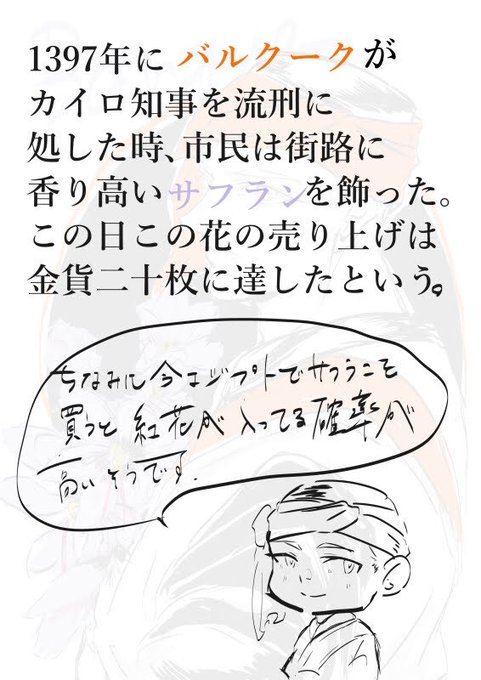 1397年にバルクークが
カイロ知事を流刑に
処した時、市民は街路に
香り高いサフランを飾った。
この日この花の売り上げは
金貨二十枚に達したという。
ちなみに今エジプトでサフランを
買うと紅花が入ってる確率が
高いそうです.